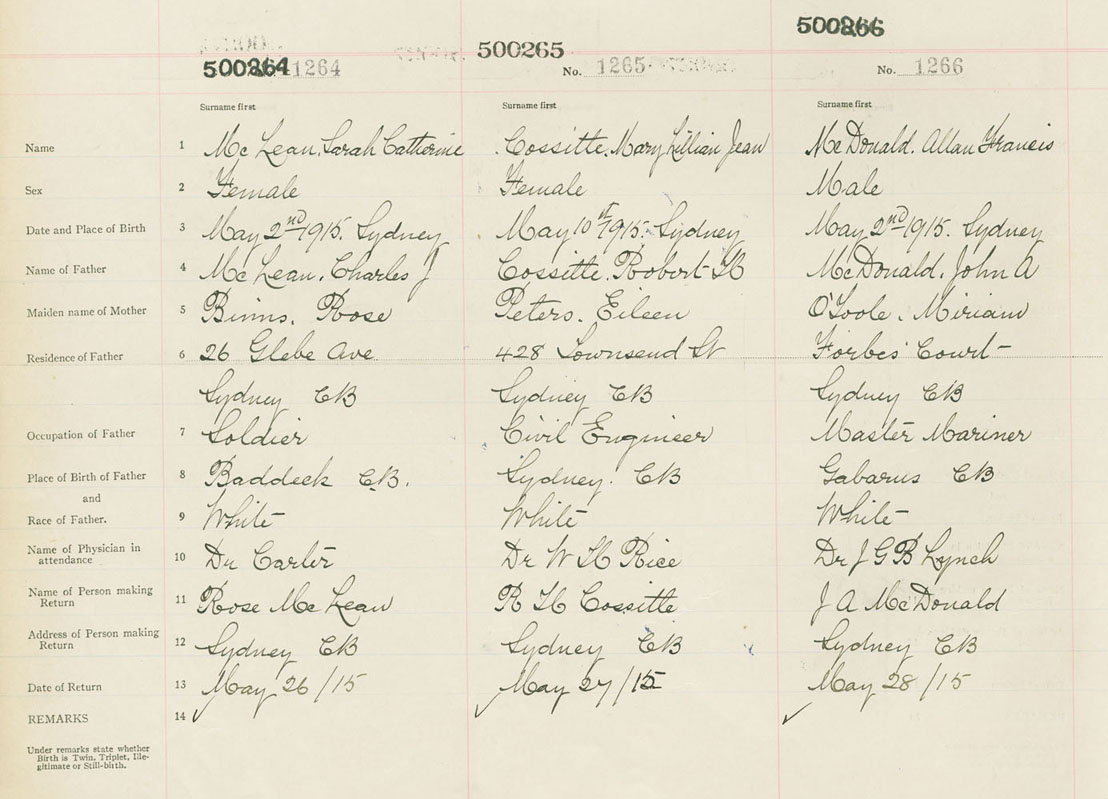 500264 1264
500265
No. 1265
500266
No. 1266
Surname first Surname first Surname first
Name 1 Mc Lean, Sarah Catherine Cossitte, Mary Lillian Jean McDonald, Allan Francis
Sex 2 Female Female Male
Date and Place of Birth 3 May 2nd 1915. Sydney May 10st 1915. Sydney May 2nd 1915. Sydney
Name of Father 4 Mc Lean, Charles J Cossitte, Robert H McDonald, John A
Maiden name of Mother 5 Binns, Rose Peters, Eileen O'Toole, Miriam
Residence of Father 6 26 Glebe Ave 428 Townsend St Forbes Court
Sydney CB Sydney CB Sydney CB
Occupation of Father 7 Soldier Civil Engineer Master Mariner
Place of Birth of Father 8 Baddeck C.B. Sydney. CB Gabarus CB
and
Race of Father. 9 White White White
Name of Physician in
attendance 10 Dr Carter Dr W H Rice Dr J G B Lynch
Name of Person making
Return 11 Rose Mc Lean R H Cossitte J A McDonald
Address of Person making
Return 12 Sydney CB Sydney CB Sydney CB
Date of Return 13 May 26/15 May 27/15 May 28/15
REMARKS 14
Under remarks state whether
Birth is Twin, Triplet, Ille-
gitimate or Still-birth.